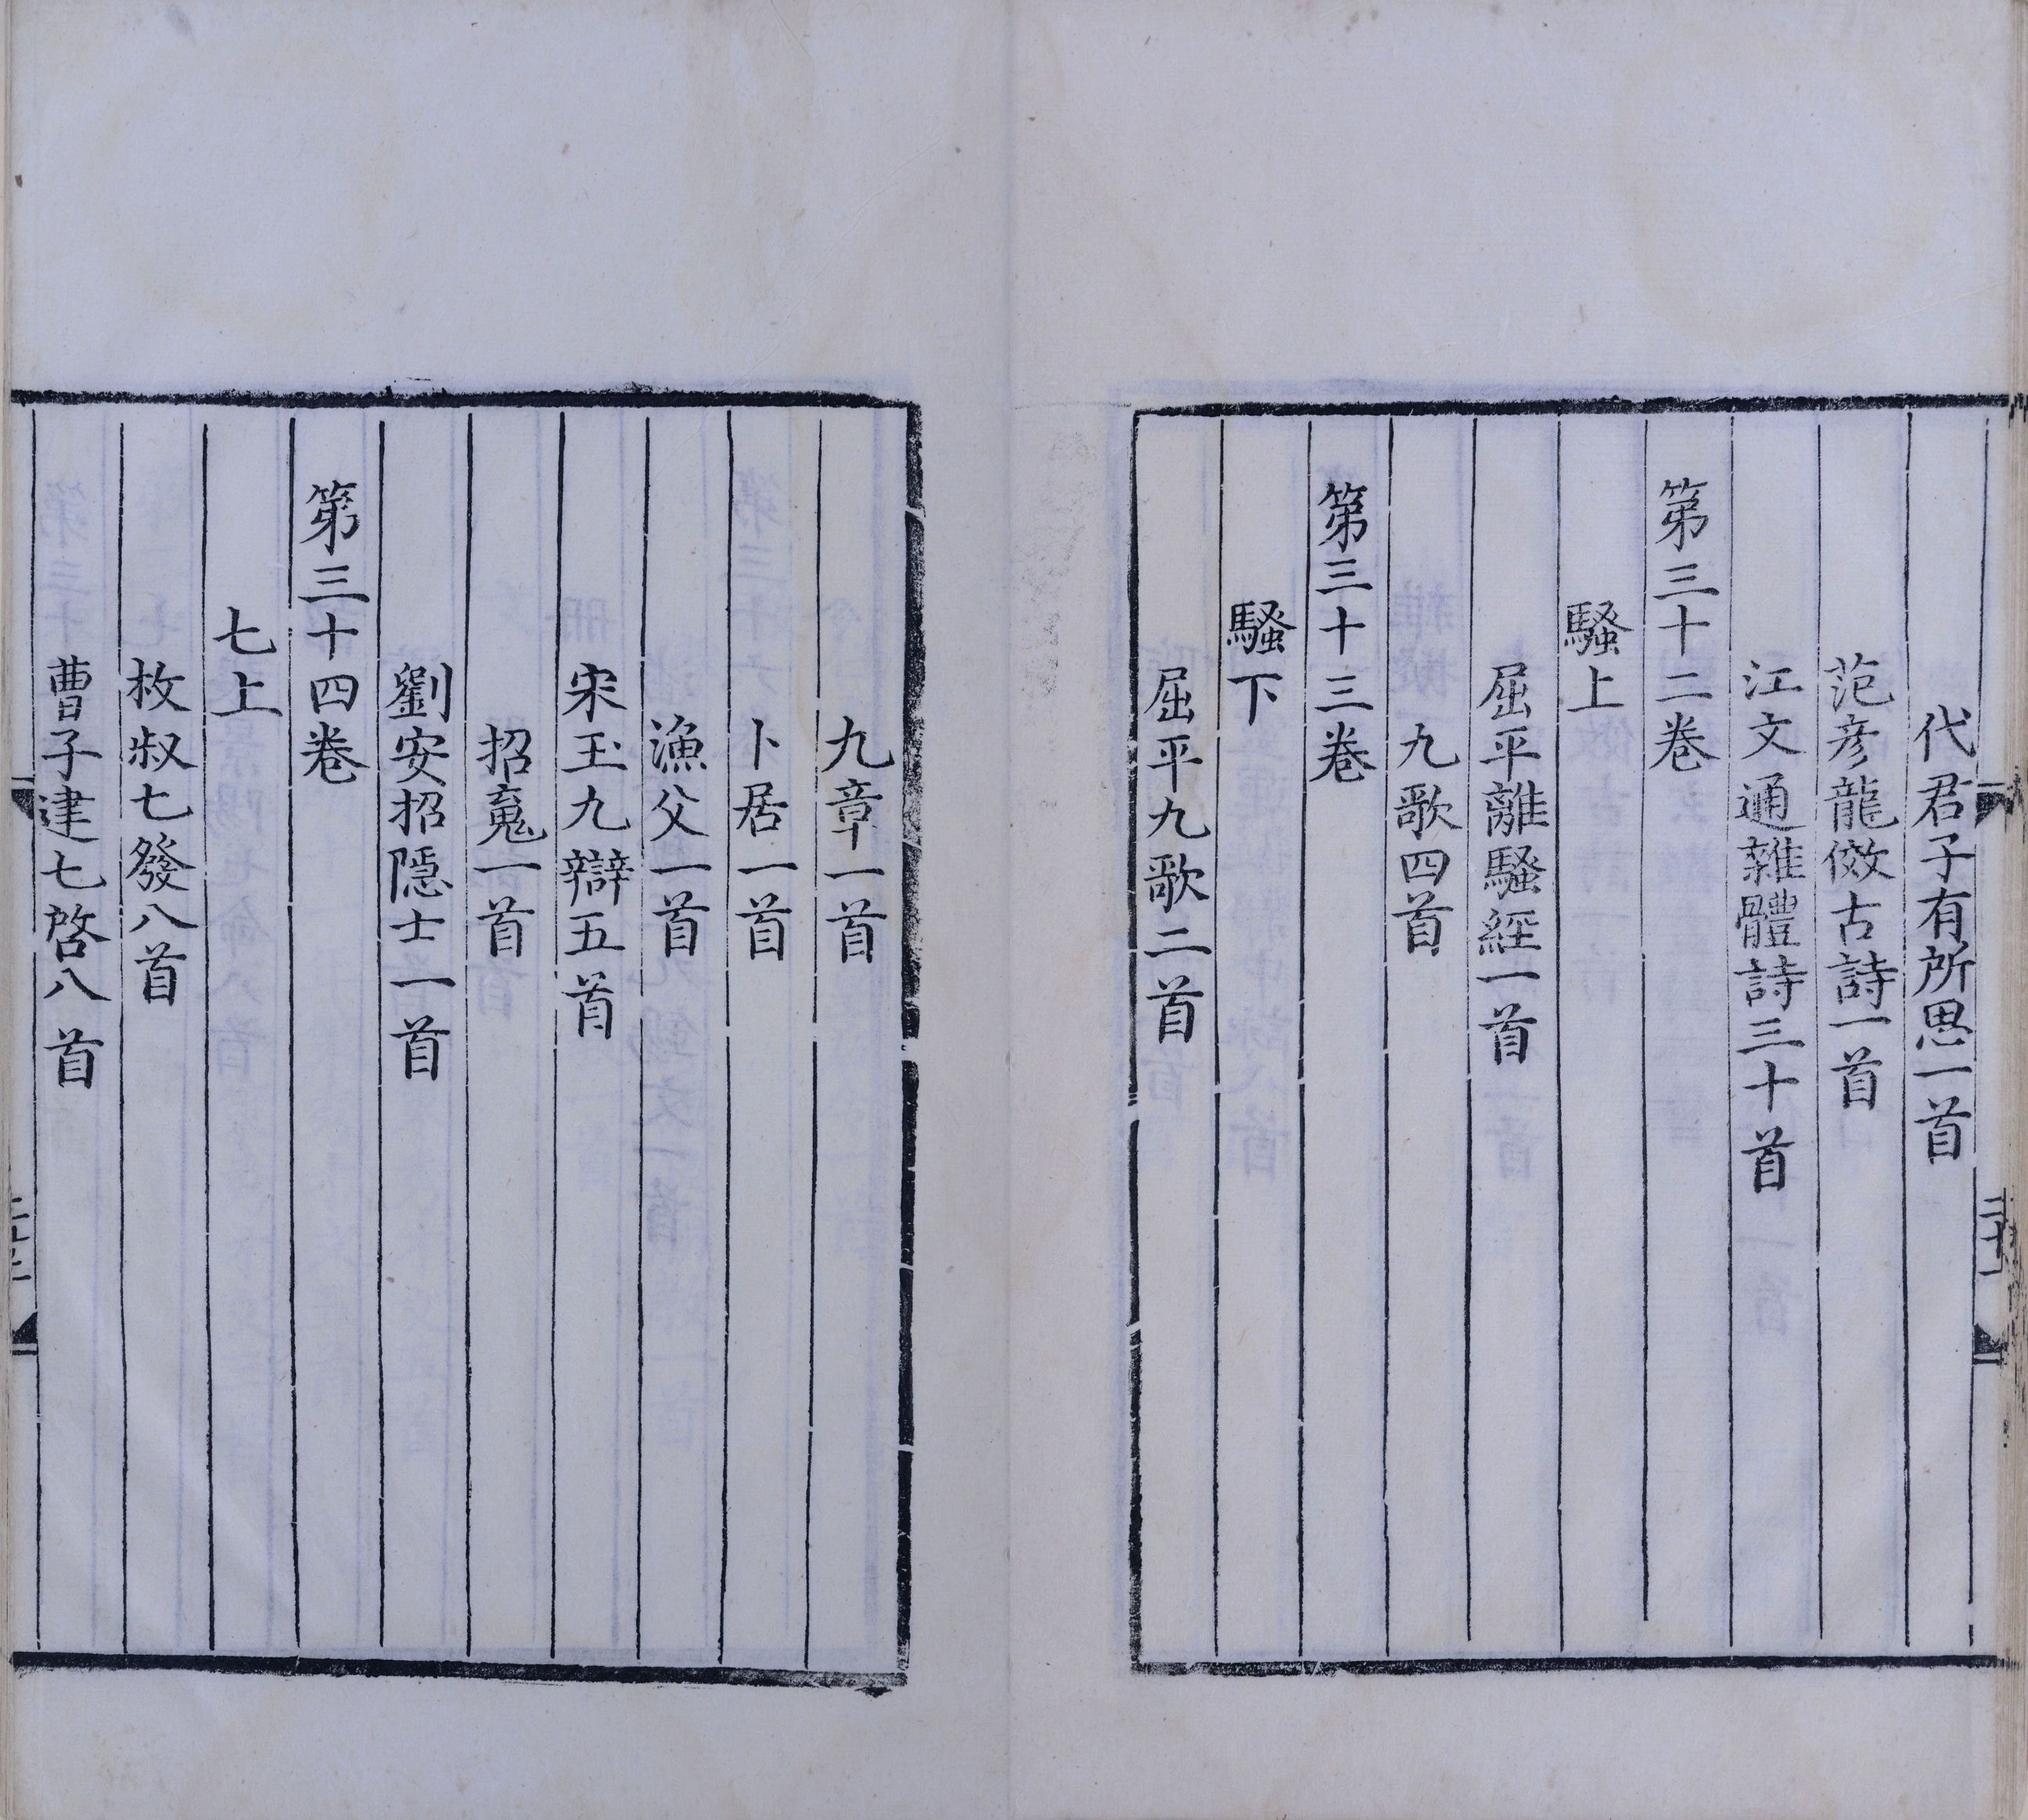 代君子有所思一首
范彦龍傚古詩一首
江文通雜體詩三十首
第三十二卷
騷上
屈平離騷經一首
九歌四首
第三十三卷
騷下
屈平九歌二首
九章一首
卜居一首
漁父一首
宋玉九辯五首
招䰟一首
劉安招隱士一首
第三十四卷
七上
枚叔七發八首
曹子建七啓八首